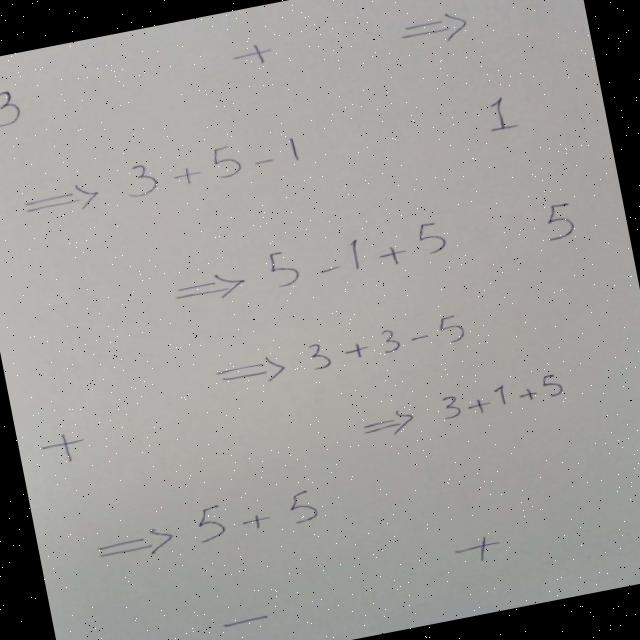 + ⇒
3 1
⇒ 3 + 5 - 1
⇒ 5 - 1 + 5 5
⇒ 3 + 3 - 5
⇒ 3 + 1 + 5
+
⇒ 5 + 5
+
-